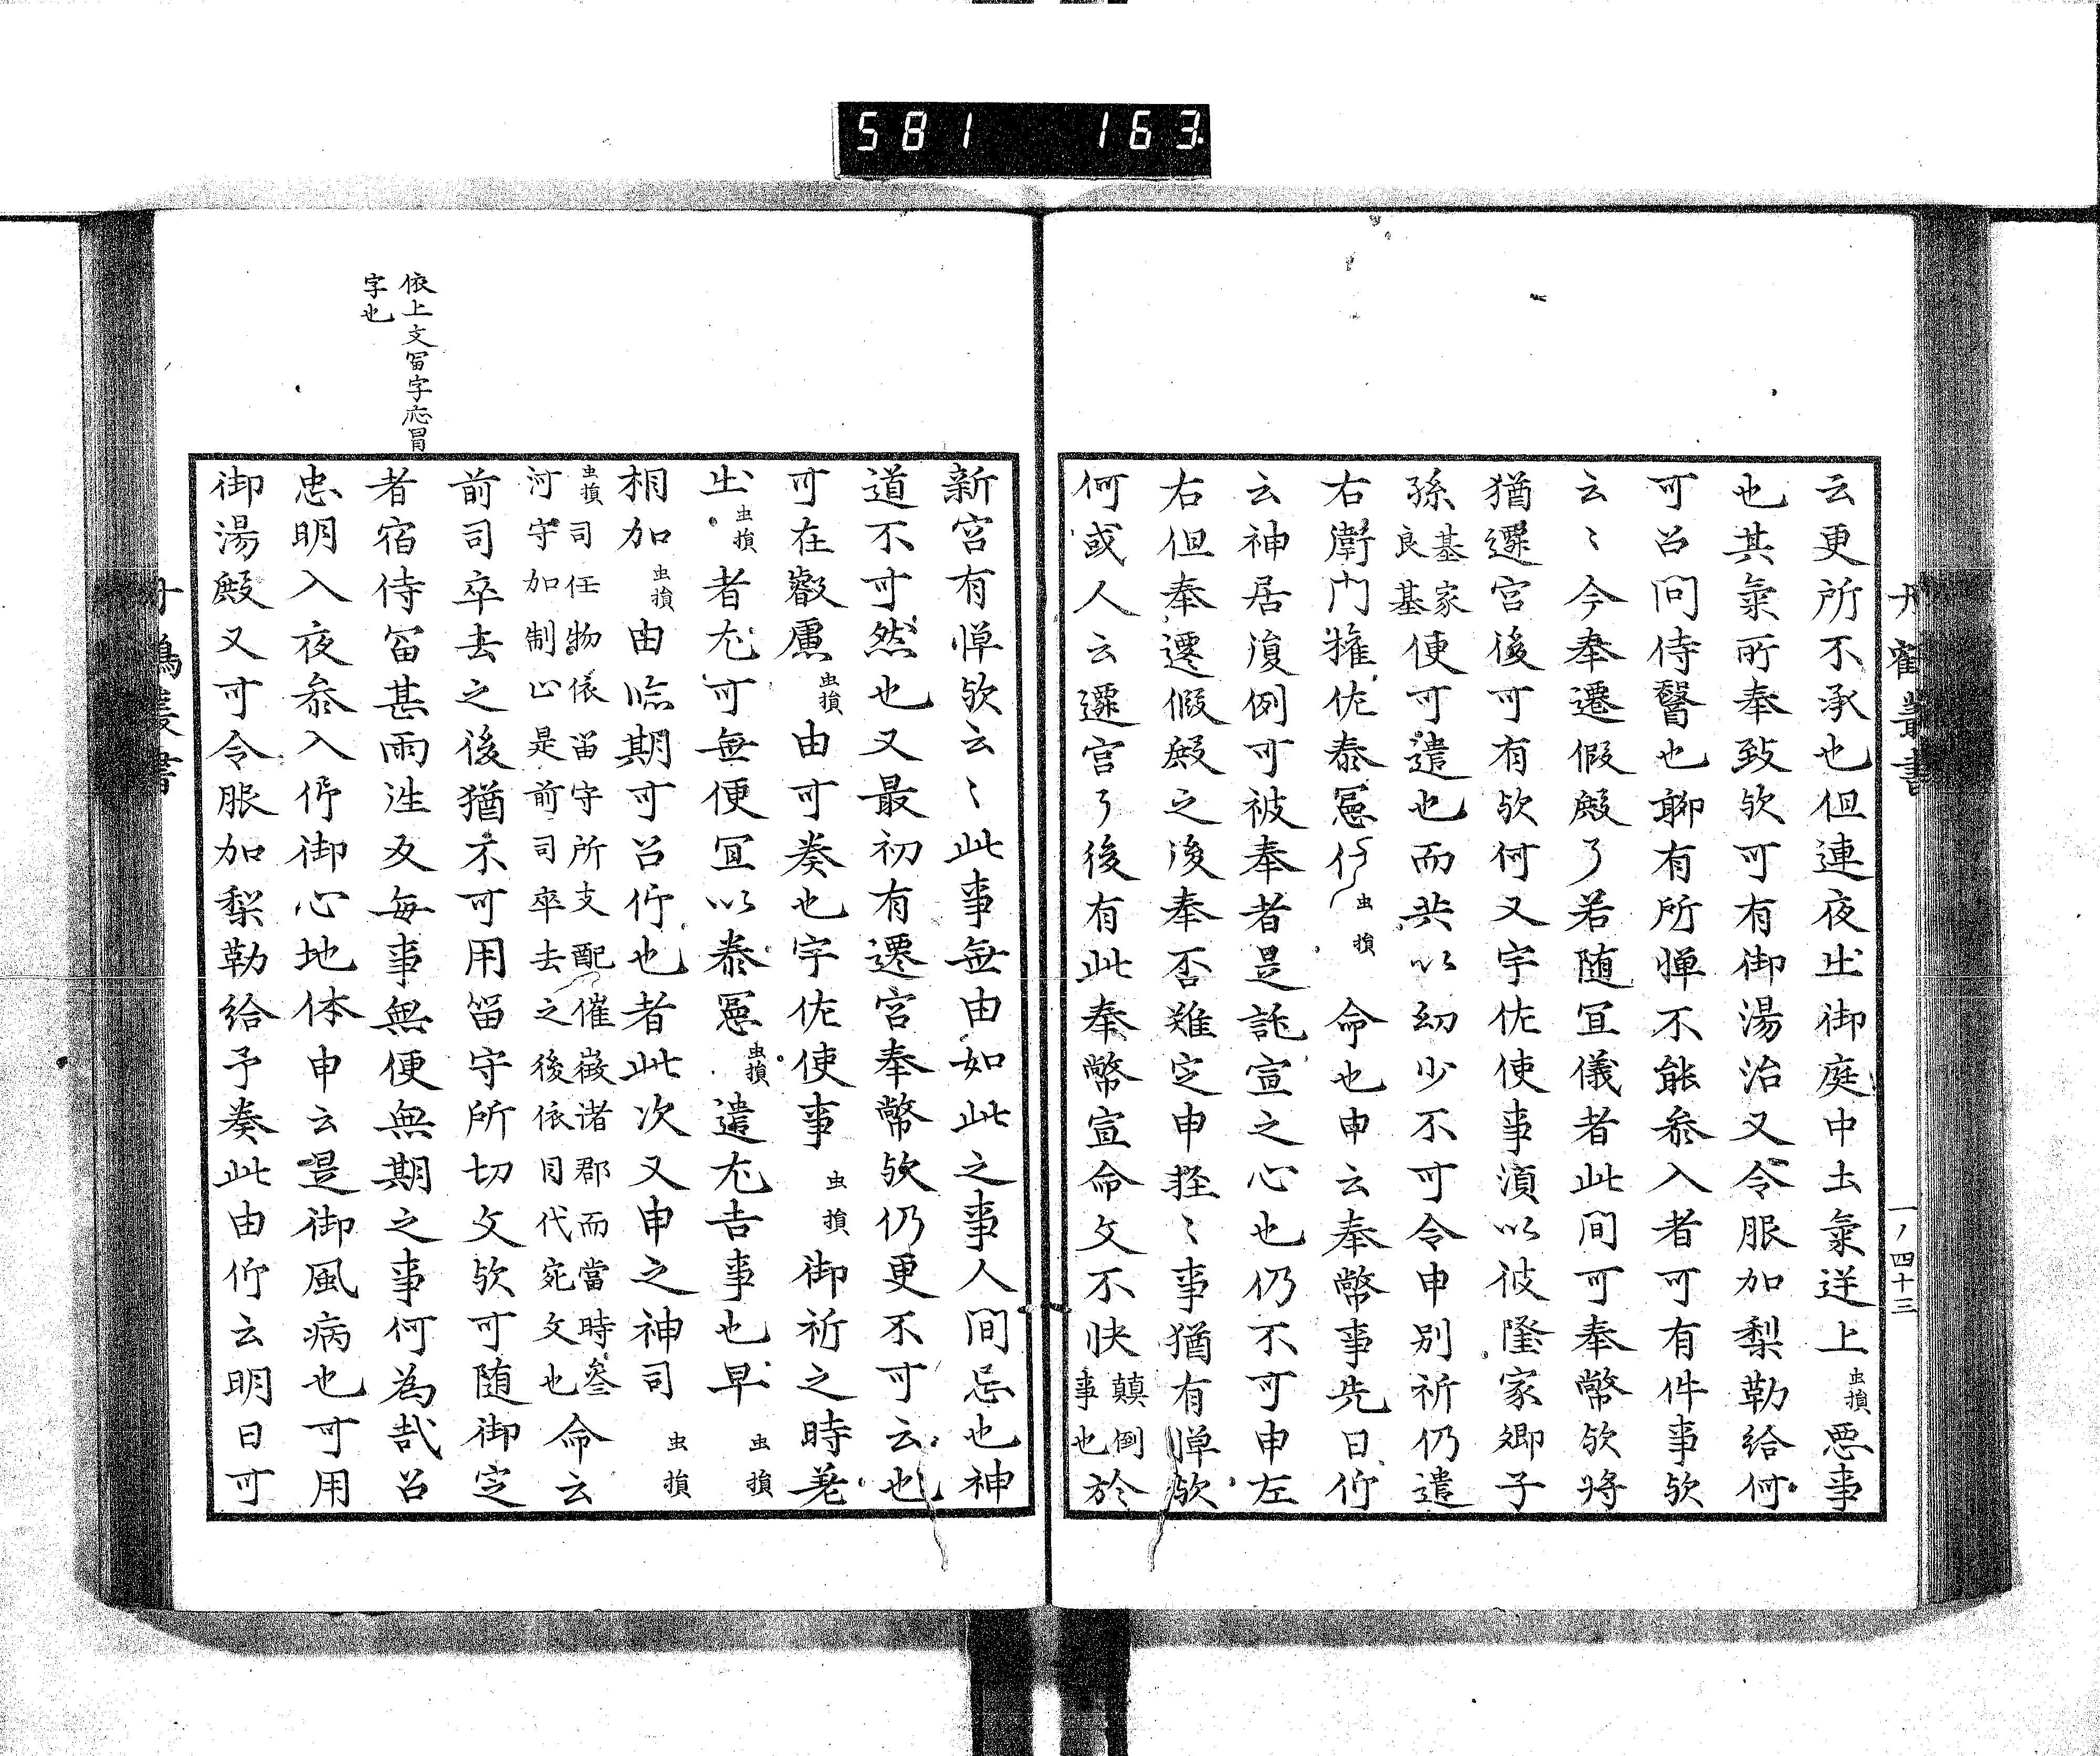 581 163
丹鶴叢書
一ノ四十三
云更所不承也但連夜出御庭中土氣逆上虫損悪事
也其氣所奉致欤可有御湯治又令服加梨勒給何
可召問侍醫也聊有所憚不能參入者可有件事欤
云〻今奉遷假殿了若随宜儀者此間可奉幣欤将
猶遷宮後可有欤何又宇佐使事須以彼隆家卿子
孫基家良基使可遣也而共以幼少不可令申別祈仍遣
右衛門権佐泰憲行虫損命也申云奉幣事先日仰
云神居復例可被奉者是託宣之心也仍不可申左
右但奉遷假殿之後奉否難定申軽〻事猶有憚欤
何或人云遷宮了後有此奉幣宣命文不快顛倒事也於
新宮有憚欤云〻此事無由如此之事人間忌也神
道不可然也又最初有遷宮奉幣欤仍更不可云也
可在叡慮虫損由可奏也宇佐使事虫損御祈之時差
出虫損者尤可無便宜以泰憲虫損遣尤吉事也早虫損
相加虫損由臨期可召仰也者此次又申之神司虫損
虫損司任物依留守所支配催徴諸郡而當時參
河守加制止是前司卒去之後依目代宛文也命云
前司卒去之後猶不可用留守所切文欤可随御定
者宿侍笛甚雨泩及毎事無便無期之事何為哉召
忠明入夜參入仰御心地体申云是御風病也可用
御湯殿又可令服加梨勒給予奏此由仰云明日可
依上文笛字応冒
字也
丹鶴叢書